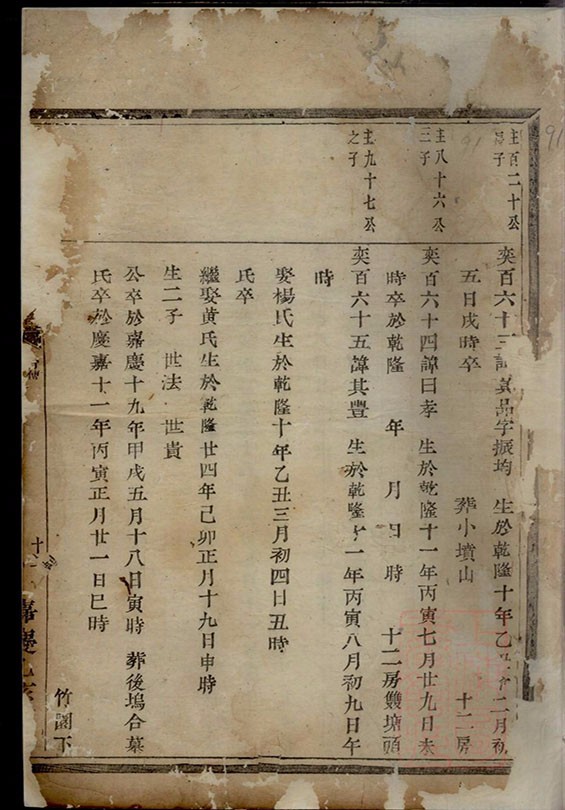 91
91
圭百二十公
子
奕百六十三諱 品字振均 生於乾隆十年乙丑十二月初
五日戌時卒 葬小墳山 十二房
圭八十六公
三子
奕百六十四諱日孝 生於乾隆十一年丙寅七月廿九日未
時卒於乾隆 年 月 日 時 十二房雙塘頭
圭九十七公
之子
奕百六十五諱其豐 生於乾隆十一年丙寅八月初九日午
時
娶楊氏生於乾隆十年乙丑三月初四日丑時
氏卒
繼娶黃氏生於乾隆廿四年己卯正月十九日申時
生二子 世法 世貴
公卒於嘉慶十九年甲戌五月十八日寅時 葬後塢合墓
氏卒於慶嘉十一年丙寅正月廿一日巳時
竹園下